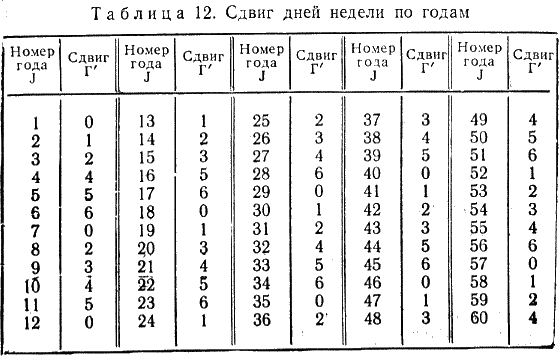 Таблица 12. Сдвиг дней недели по годам
Номер года J Сдвиг Г′ Номер года J Сдвиг Г′ Номер года J Сдвиг Г′ Номер года J Сдвиг Г′ Номер года J Сдвиг Г′
1 0 13 1 25 2 37 3 49 4
2 1 14 2 26 3 38 4 50 5
3 2 15 3 27 4 39 5 51 6
4 4 16 5 28 6 40 0 52 1
5 5 17 6 29 0 41 1 53 2
6 6 18 0 30 1 42 2 54 3
7 0 19 1 31 2 43 3 55 4
8 2 20 3 32 4 44 5 56 6
9 3 21 4 33 5 45 6 57 0
10 4 22 5 34 6 46 0 58 1
11 5 23 6 35 0 47 1 59 2
12 0 24 1 36 2 48 3 60 4